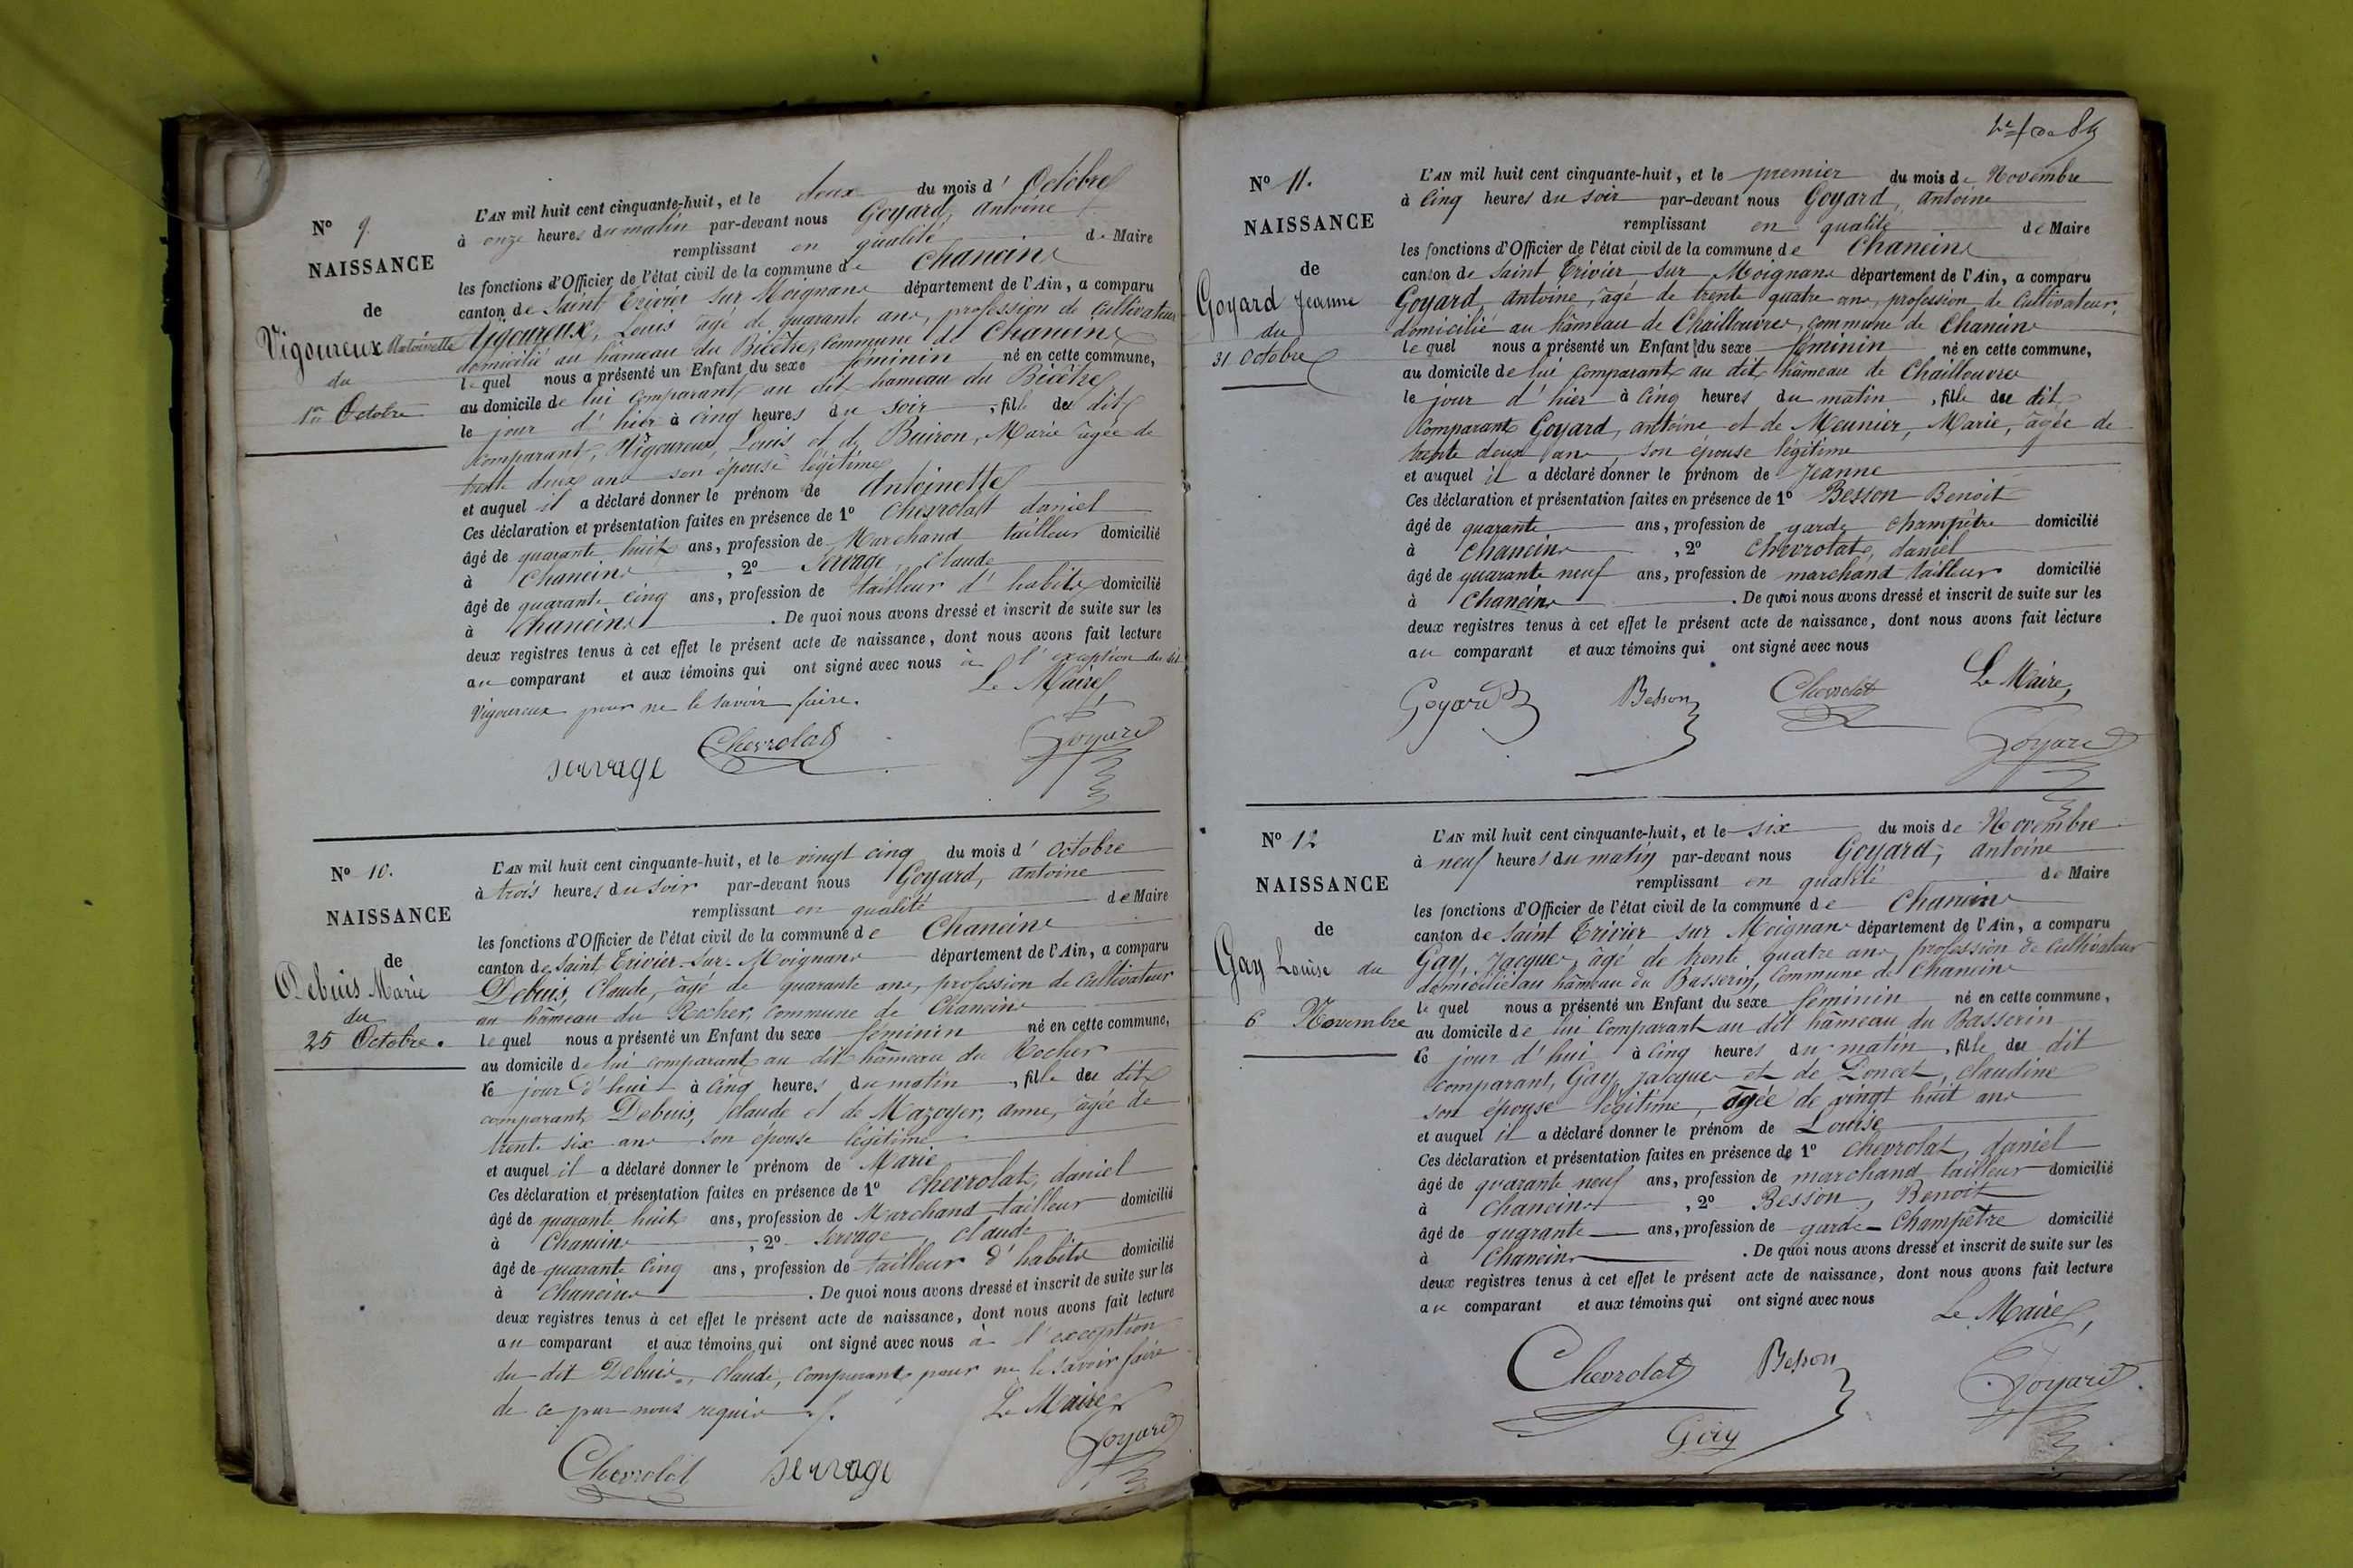 N° 9.
NAISSANCE
de
Vigoureux Antoinette
du
1er Octobre
L'AN mil huit cent cinquante-huit, et le deux du mois d' Octobre
à onze heures du matin par-devant nous Goyard, Antoine
remplissant en qualité de Maire
les fonctions d'Officier de l'état civil de la commune de Chaneins
canton de Saint Trivier sur Moignans département de l'Ain, a comparu
Vigoureux, Louis âgé de quarante ans, profession de Cultivateur
domicilié au hâmeau du Bicêtre, commune de Chaneins
lequel nous a présenté un Enfant du sexe féminin né en cette commune,
au domicile de lui comparant au dit hameau du Bicêtre
le jour d'hier à cinq heures du soir, fille du dit
comparant, Vigoureux, Louis et de Buiron, Marie âgée de
trente deux ans son épouse légitime
et auquel il a déclaré donner le prénom de Antoinette
Ces déclaration et présentation faites en présence de 1° Chevrolat daniel
âgé de quarante huit ans, profession de Marchand tailleur domicilié
à Chaneins, 2° Servage, Claude
âgé de quarante cinq ans, profession de tailleur d'habits domicilié
à Chaneins. De quoi nous avons dressé et inscrit de suite sur les
deux registres tenus à cet effet le présent acte de naissance, dont nous avons fait lecture
au comparant et aux témoins qui ont signé avec nous à l'exception du dit
Vigoureux pour ne le savoir faire.
Le Maire
Chevrolat
servage
Goyard
N° 10.
NAISSANCE
de
Debuis Marie
du
25 Octobre.
L'AN mil huit cent cinquante-huit, et le vingt cinq du mois d' Octobre
à trois heures du soir par-devant nous Goyard, Antoine
remplissant en qualité de Maire
les fonctions d'Officier de l'état civil de la commune de Chaneins
canton de Saint Trivier-sur-Moignans département de l'Ain, a comparu
Debuis, Claude, âgé de quarante ans, profession de cultivateur
au hâmeau du Rocher, commune de Chaneins
lequel nous a présenté un Enfant du sexe féminin né en cette commune,
au domicile de lui comparant au dit hâmeau du Rocher
ce jour d'hui à cinq heures du matin, fille du dit
comparant Debuis, Claude et de Mazoyer, anne, âgée de
trente six ans son épouse légitime
et auquel il a déclaré donner le prénom de Marie
Ces déclaration et présentation faites en présence de 1° Chevrolat, daniel
âgé de quarante huit ans, profession de Marchand tailleur domicilié
à Chaneins, 2° Servage, Claude
âgé de quarante cinq ans, profession de tailleur d'habits domicilié
à Chaneins. De quoi nous avons dressé et inscrit de suite sur les
deux registres tenus à cet effet le présent acte de naissance, dont nous avons fait lecture
au comparant et aux témoins qui ont signé avec nous à l'exception
du dit Debuis, Claude, comparant pour ne le savoir faire
de ce par nous requis
Le Maire
Chevrolat
servage
Goyard
N° 11.
NAISSANCE
de
Goyard Jeanne
du
31 Octobre
L'AN mil huit cent cinquante-huit, et le premier du mois de Novembre
à Cinq heures du soir par-devant nous Goyard, Antoine
remplissant en qualité de Maire
les fonctions d'Officier de l'état civil de la commune de Chaneins
canton de Saint Trivier sur Moignans département de l'Ain, a comparu
Goyard, Antoine, âgé de trente quatre ans, profession de Cultivateur,
domicilié au hâmeau de Chaillouvres, commune de Chaneins
lequel nous a présenté un Enfant du sexe féminin né en cette commune,
au domicile de lui comparant au dit hâmeau de Chaillouvres
le jour d'hier à Cinq heures du matin, fille du dit
Comparant Goyard, antoine et de Meunier, Marie, âgée de
trente deux ans, son épouse légitime
et auquel il a déclaré donner le prénom de Jeanne
Ces déclaration et présentation faites en présence de 1° Besson Benoit
âgé de quarante ans, profession de garde champêtre domicilié
à Chaneins, 2° Chevrolat, daniel
âgé de quarante neuf ans, profession de marchand tailleur domicilié
à Chaneins. De quoi nous avons dressé et inscrit de suite sur les
deux registres tenus à cet effet le présent acte de naissance, dont nous avons fait lecture
au comparant et aux témoins qui ont signé avec nous
Le Maire,
Goyard
Besson
Chevrolat
Goyard
N° 12
NAISSANCE
de
Gay Louise du
6 Novembre
L'AN mil huit cent cinquante-huit, et le six du mois de Novembre
à neuf heures du matin par-devant nous Goyard, Antoine
remplissant en qualité de Maire
les fonctions d'Officier de l'état civil de la commune de Chaneins
canton de Saint Trivier sur Moignans département de l'Ain, a comparu
Gay, Jacques, âgé de trente quatre ans, profession de Cultivateur
domicilié au hâmeau du Basserin, Commune de Chaneins
lequel nous a présenté un Enfant du sexe féminin né en cette commune,
au domicile de lui Comparant au dit hâmeau du Basserin
ce jour d'hui à Cinq heures du matin, fille du dit
comparant, Gay, Jacques et de Poncet, Claudine
son épouse légitime, âgée de vingt huit ans
et auquel il a déclaré donner le prénom de Louise
Ces déclaration et présentation faites en présence de 1° Chevrolat, daniel
âgé de quarante neuf ans, profession de marchand tailleur domicilié
à Chaneins, 2° Besson, Benoit
âgé de quarante ans, profession de garde-Champêtre domicilié
à Chaneins. De quoi nous avons dressé et inscrit de suite sur les
deux registres tenus à cet effet le présent acte de naissance, dont nous avons fait lecture
au comparant et aux témoins qui ont signé avec nous
Le Maire,
Chevrolat
Besson
Goyard
Gay